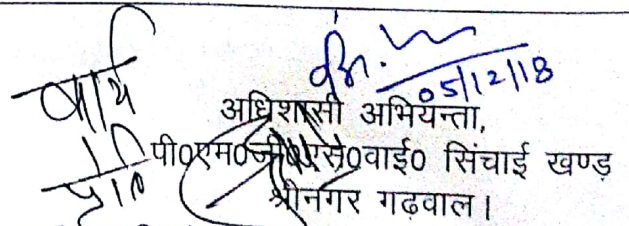 05/12/18
अधिशासी अभियन्ता,
पी0एम0जी0एस0वाई0 सिंचाई खण्ड
श्रीनगर गढ़वाल।